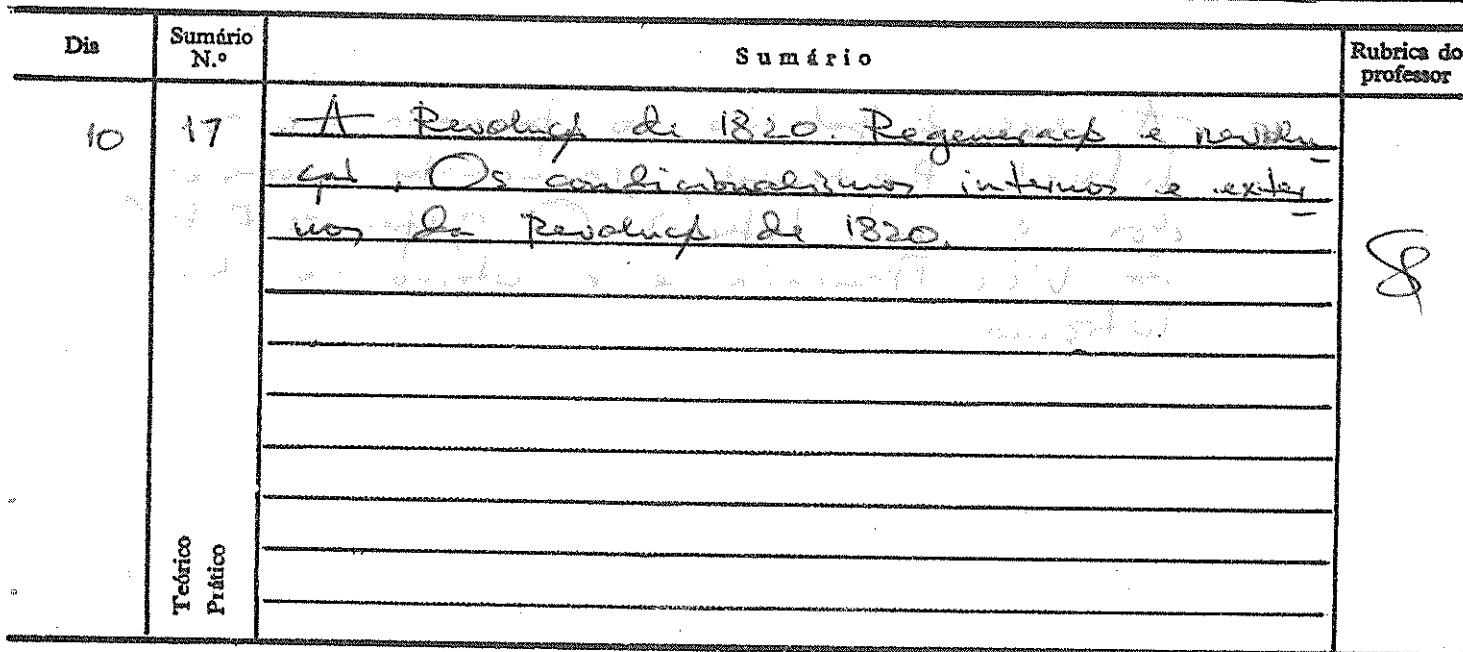 Dia Sumário N.º Sumário Rubrica do professor
10 17 A Revolução de 1820. Regeneração e revolu-
ção. Os condicionalismos internos e exter-
nos da Revolução de 1820.
Teórico
Prático